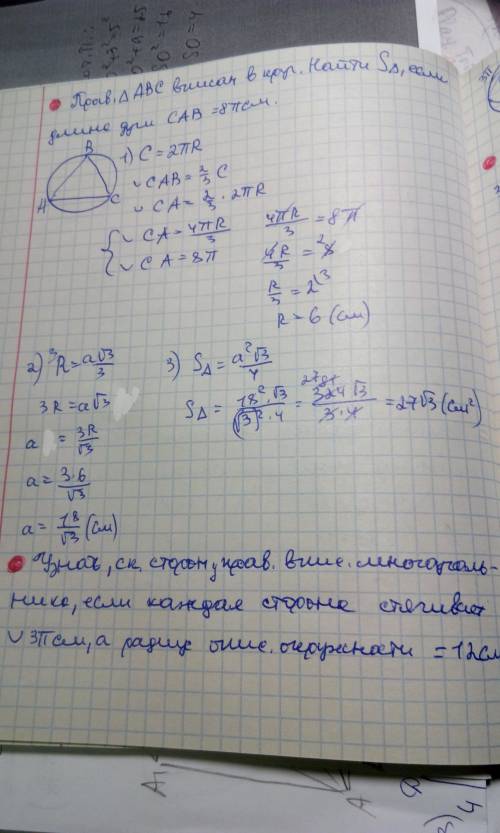 Прав. △ ABC вписан в кр. Найти S△, если
длина дуги CAB = 8π см.
B
A
C
1) C = 2πR
◡ CAB = 2/3 C
◡ CA = 2/3 · 2πR
{ ◡ CA = 4πR/3
◡ CA = 8π
4πR/3 = 8π
4R/3 = 8 2
R/3 = 2 \3
R = 6 (см)
2) 3\ R = a√3/3
3R = a√3
a = 3R/√3
a = 3·6/√3
a = 18/√3 (см)
3) S△ = a²√3/4
S△ = 18²·√3/(√3)²·4 = 324√3/3·4 = 27√3 (см²)
Узнать, ск. сторон у прав. впис. многоуголь-
ника, если каждая сторона стягивает
◡ 3π см, а радиус опис. окружности = 12 см
SO = 4
A₁
A
4